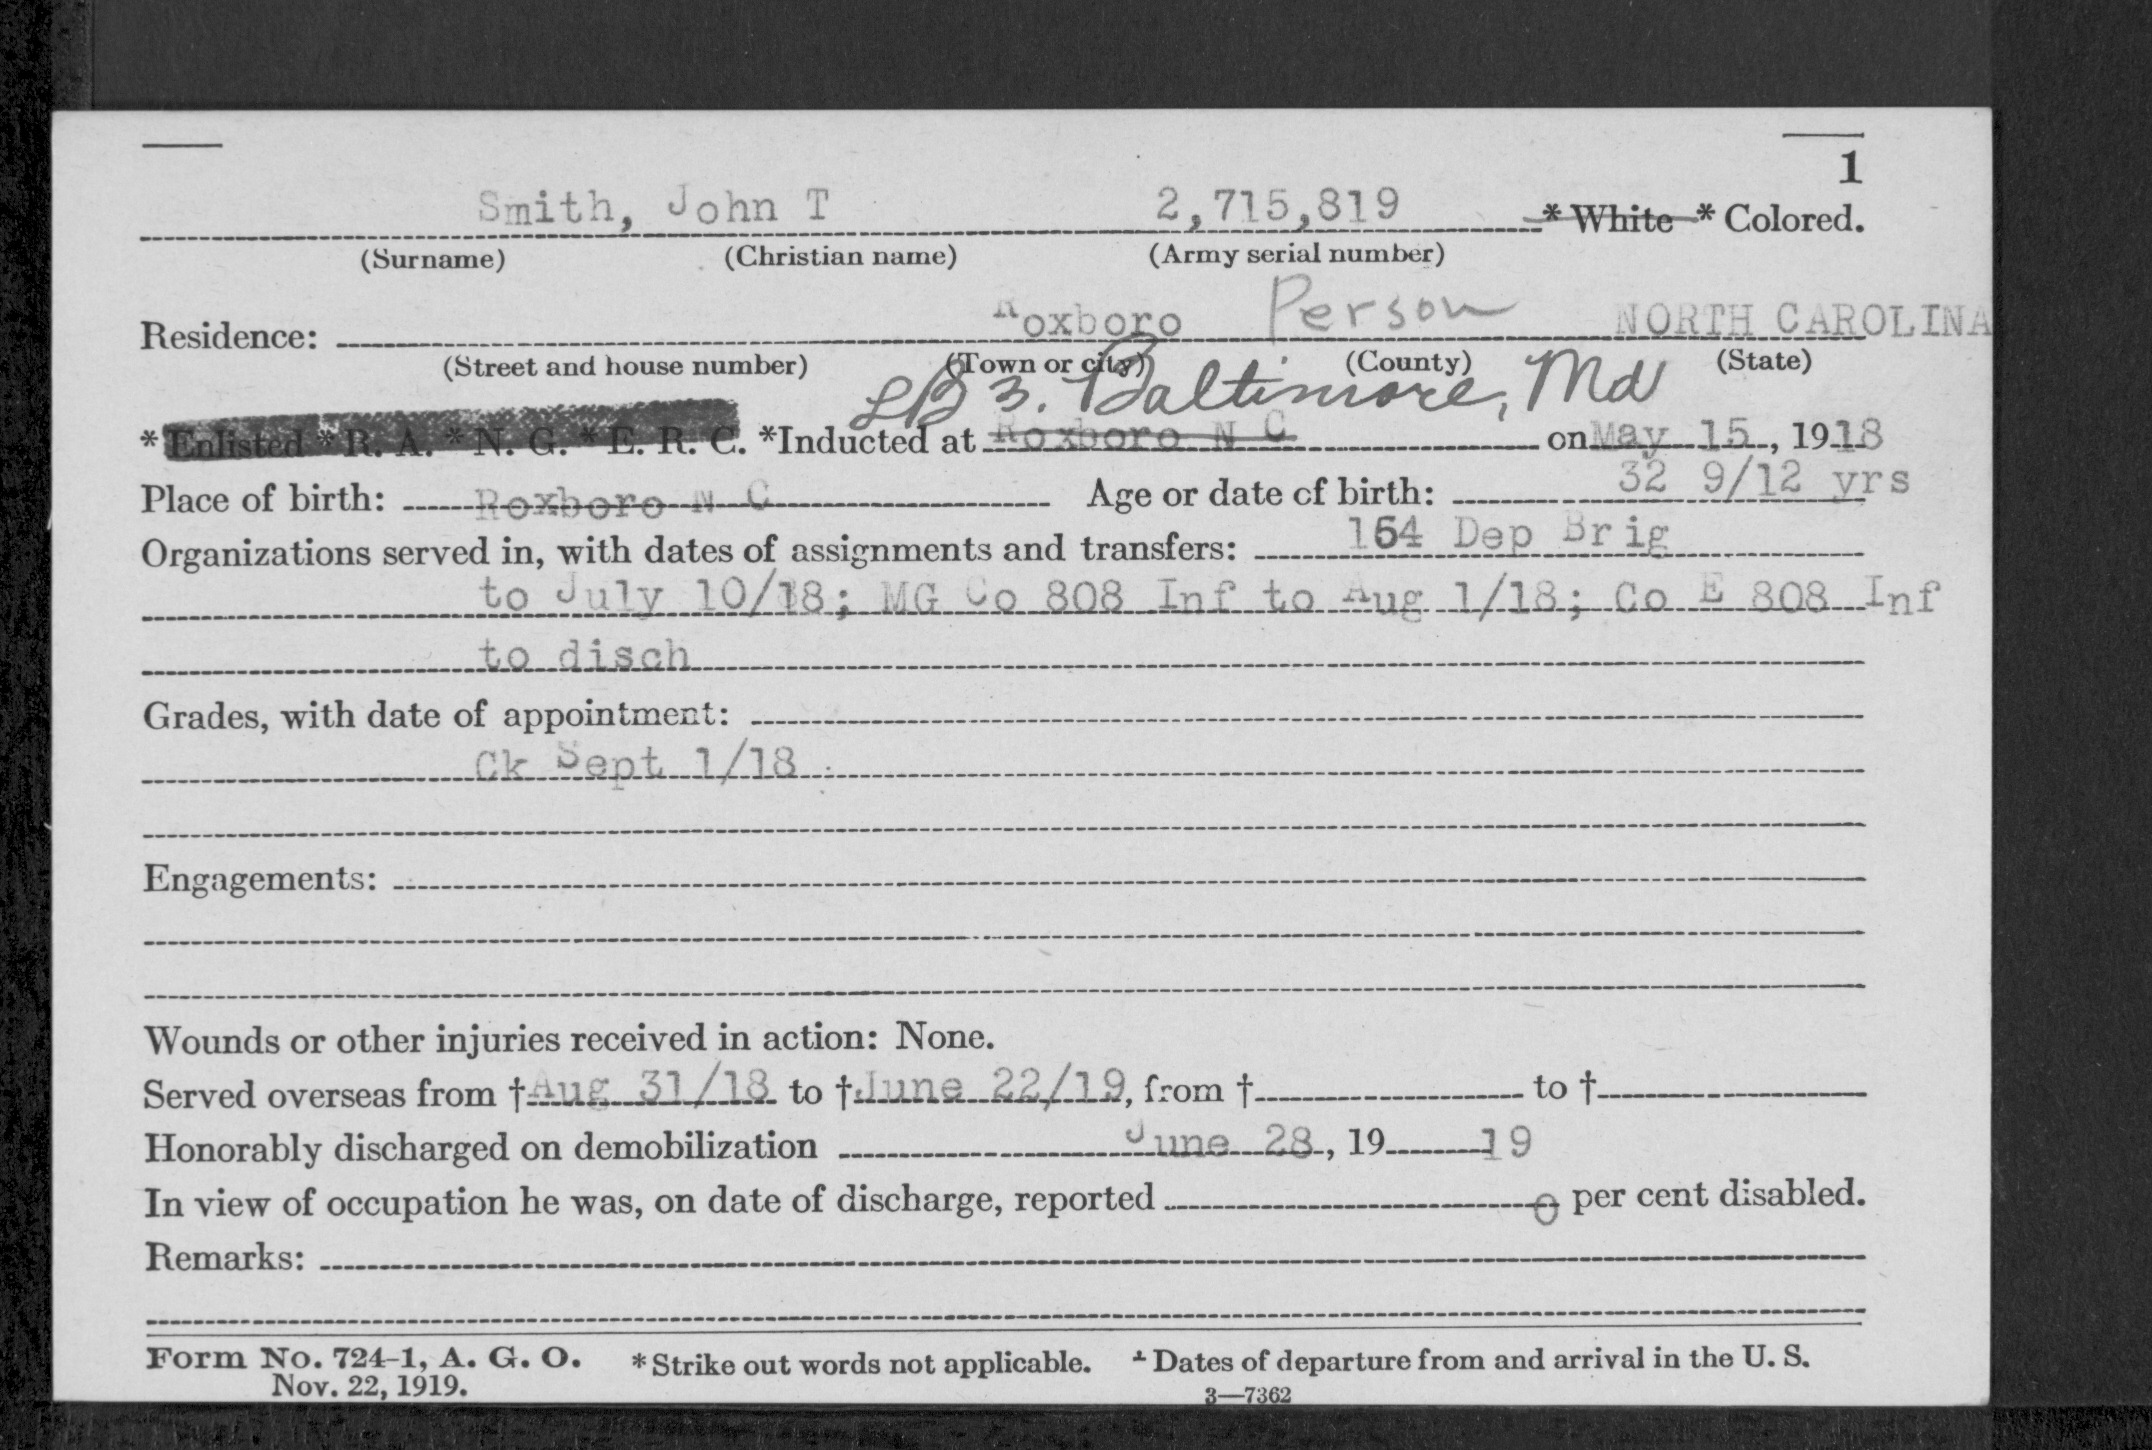 1
Smith, John T 2,715,819 * White * Colored.
(Surname) (Christian name) (Army serial number)
Residence: Roxboro Person NORTH CAROLINA
(Street and house number) (Town or city) (County) (State)
LB 3. Baltimore, Md
* Enlisted * R. A. * N. G. * E. R. C. *Inducted at Roxboro N C on May 15, 1918
Place of birth: Roxboro N C Age or date of birth: 32 9/12 yrs
Organizations served in, with dates of assignments and transfers: 154 Dep Brig
to July 10/18; MG Co 808 Inf to Aug 1/18; Co E 808 Inf
to disch
Grades, with date of appointment:
Ck Sept 1/18
Engagements:
Wounds or other injuries received in action: None.
Served overseas from † Aug 31/18 to † June 22/19, from † to †
Honorably discharged on demobilization June 28, 19 19
In view of occupation he was, on date of discharge, reported 0 per cent disabled.
Remarks:
Form No. 724-1, A. G. O. * Strike out words not applicable. † Dates of departure from and arrival in the U. S.
Nov. 22, 1919. 3—7362